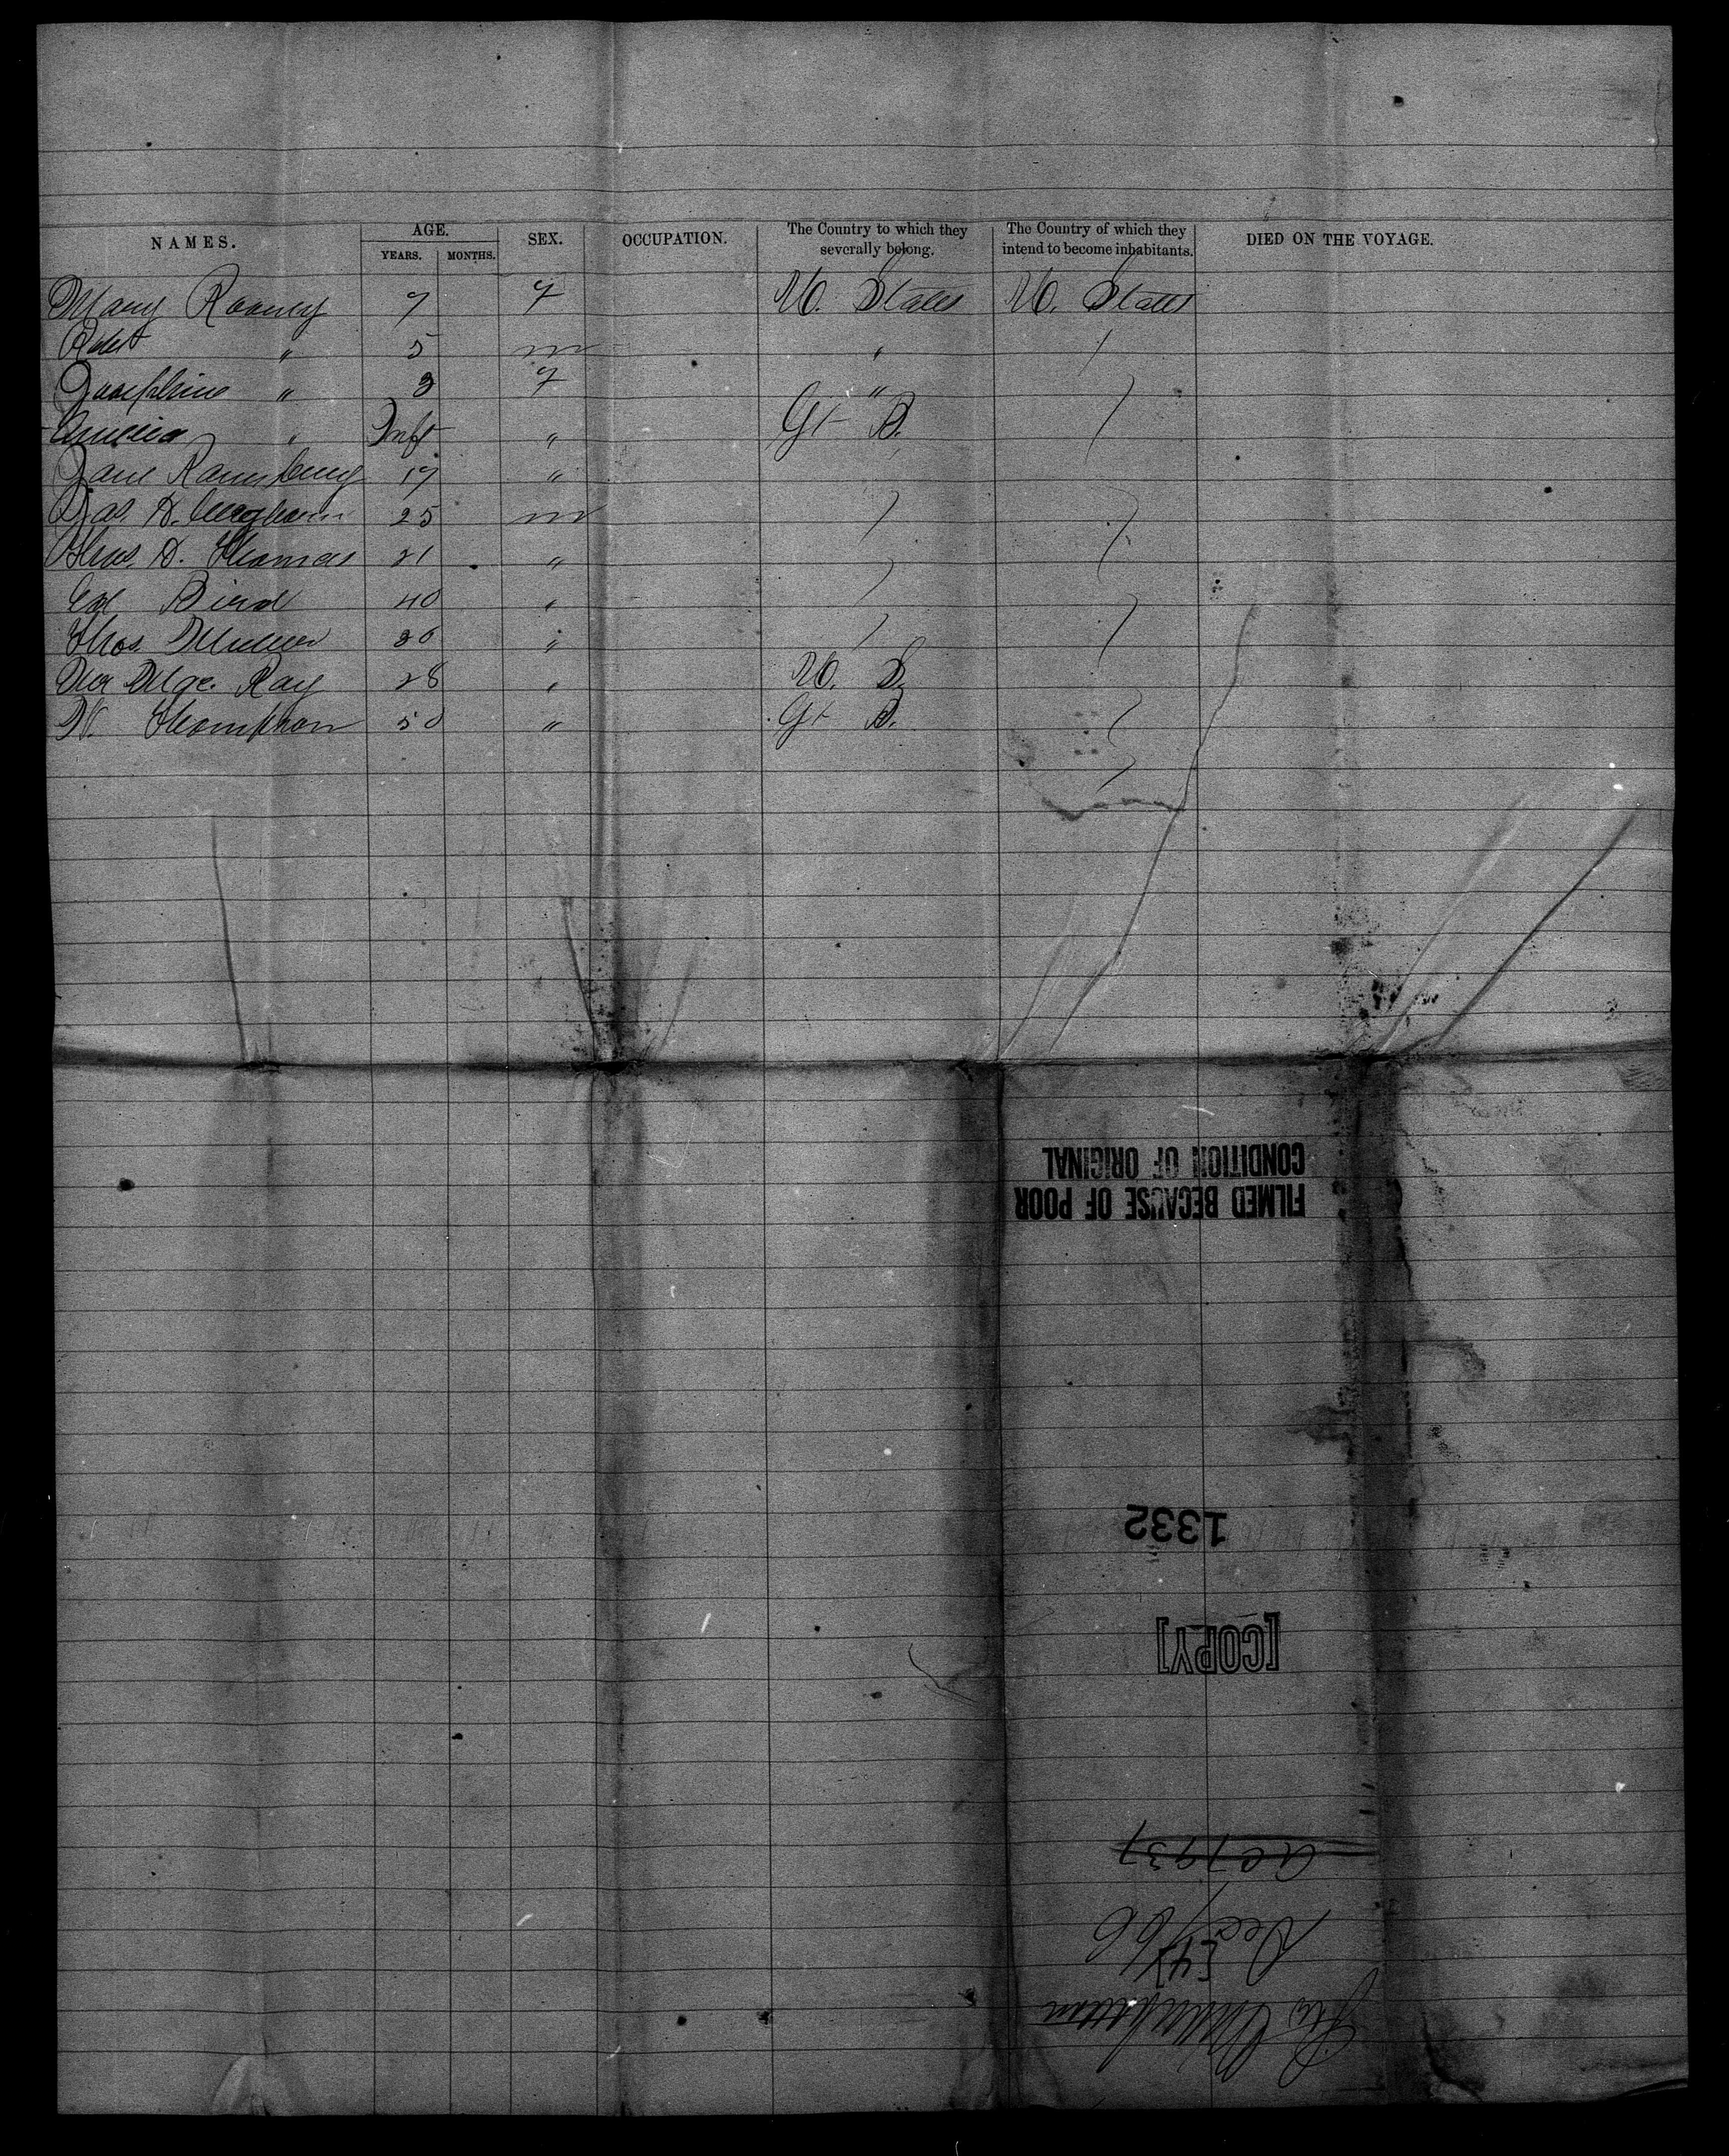 NAMES. AGE. YEARS. MONTHS. SEX. OCCUPATION. The Country to which they severally belong. The Country of which they intend to become inhabitants. DIED ON THE VOYAGE.
Mary Rooney 7 f U. States U. States
Robt " 5 m " /
Josephine " 3 f " /
Amelia " Inft " Gt B. /
Jane 17 "
Jas. D. 25 m / /
Thos. D. Thomas 21 " / /
Ed Bird 40 " / /
Thos. 36 " / /
Ray 28 " U. S.
W. Thompson 50 " Gt B. /
FILMED BECAUSE OF POOR
CONDITION OF ORIGINAL
1332
[COPY]
7937
Dec/66
[4]